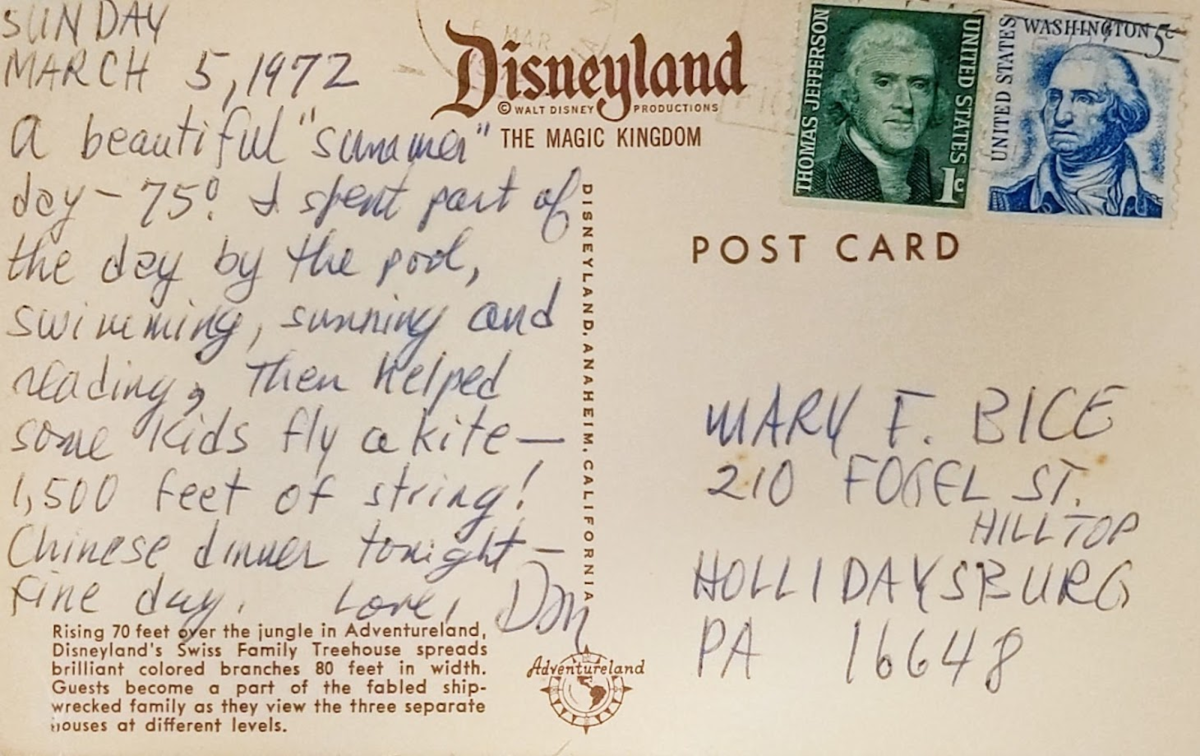 SUNDAY
MARCH 5, 1972
A beautiful "summer"
day - 75°. I spent part of
the day by the pool,
swimming, sunning and
reading, Then Helped
some kids fly a kite —
1,500 feet of string!
Chinese dinner tonight —
Fine day. Love, Don
Rising 70 feet over the jungle in Adventureland,
Disneyland's Swiss Family Treehouse spreads
brilliant colored branches 80 feet in width.
Guests become a part of the fabled ship-
wrecked family as they view the three separate
houses at different levels.
MAR
Disneyland
© WALT DISNEY PRODUCTIONS
THE MAGIC KINGDOM
DISNEYLAND, ANAHEIM, CALIFORNIA
Adventureland
THOMAS JEFFERSON
UNITED STATES
1c
UNITED STATES
WASHINGTON 5c
POST CARD
MARY F. BICE
210 FOGEL ST.
HILLTOP
HOLLIDAYSBURG
PA 16648